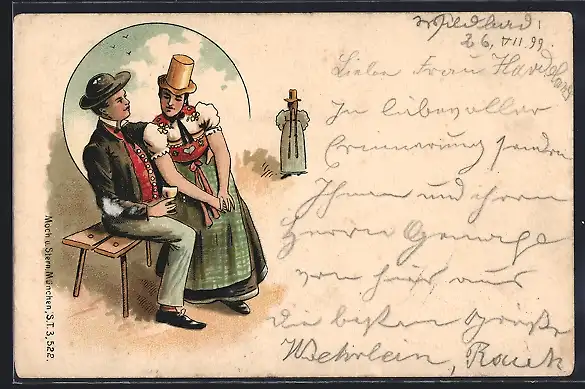 Wildbad,
26. VII. 99.
Liebe Frau
In liebevoller
Erinnerung senden
Ihnen und ihrem
Herrn Gemahl
von hier aus
die besten Grüße
Wehrlein, Rauch
Moch u. Stern, München, S.T. 3, 522.